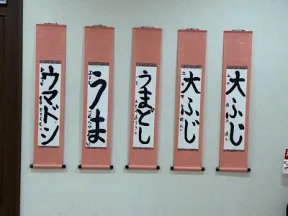 ウマドシ
うま
うまどし
大ふじ
大ふじ